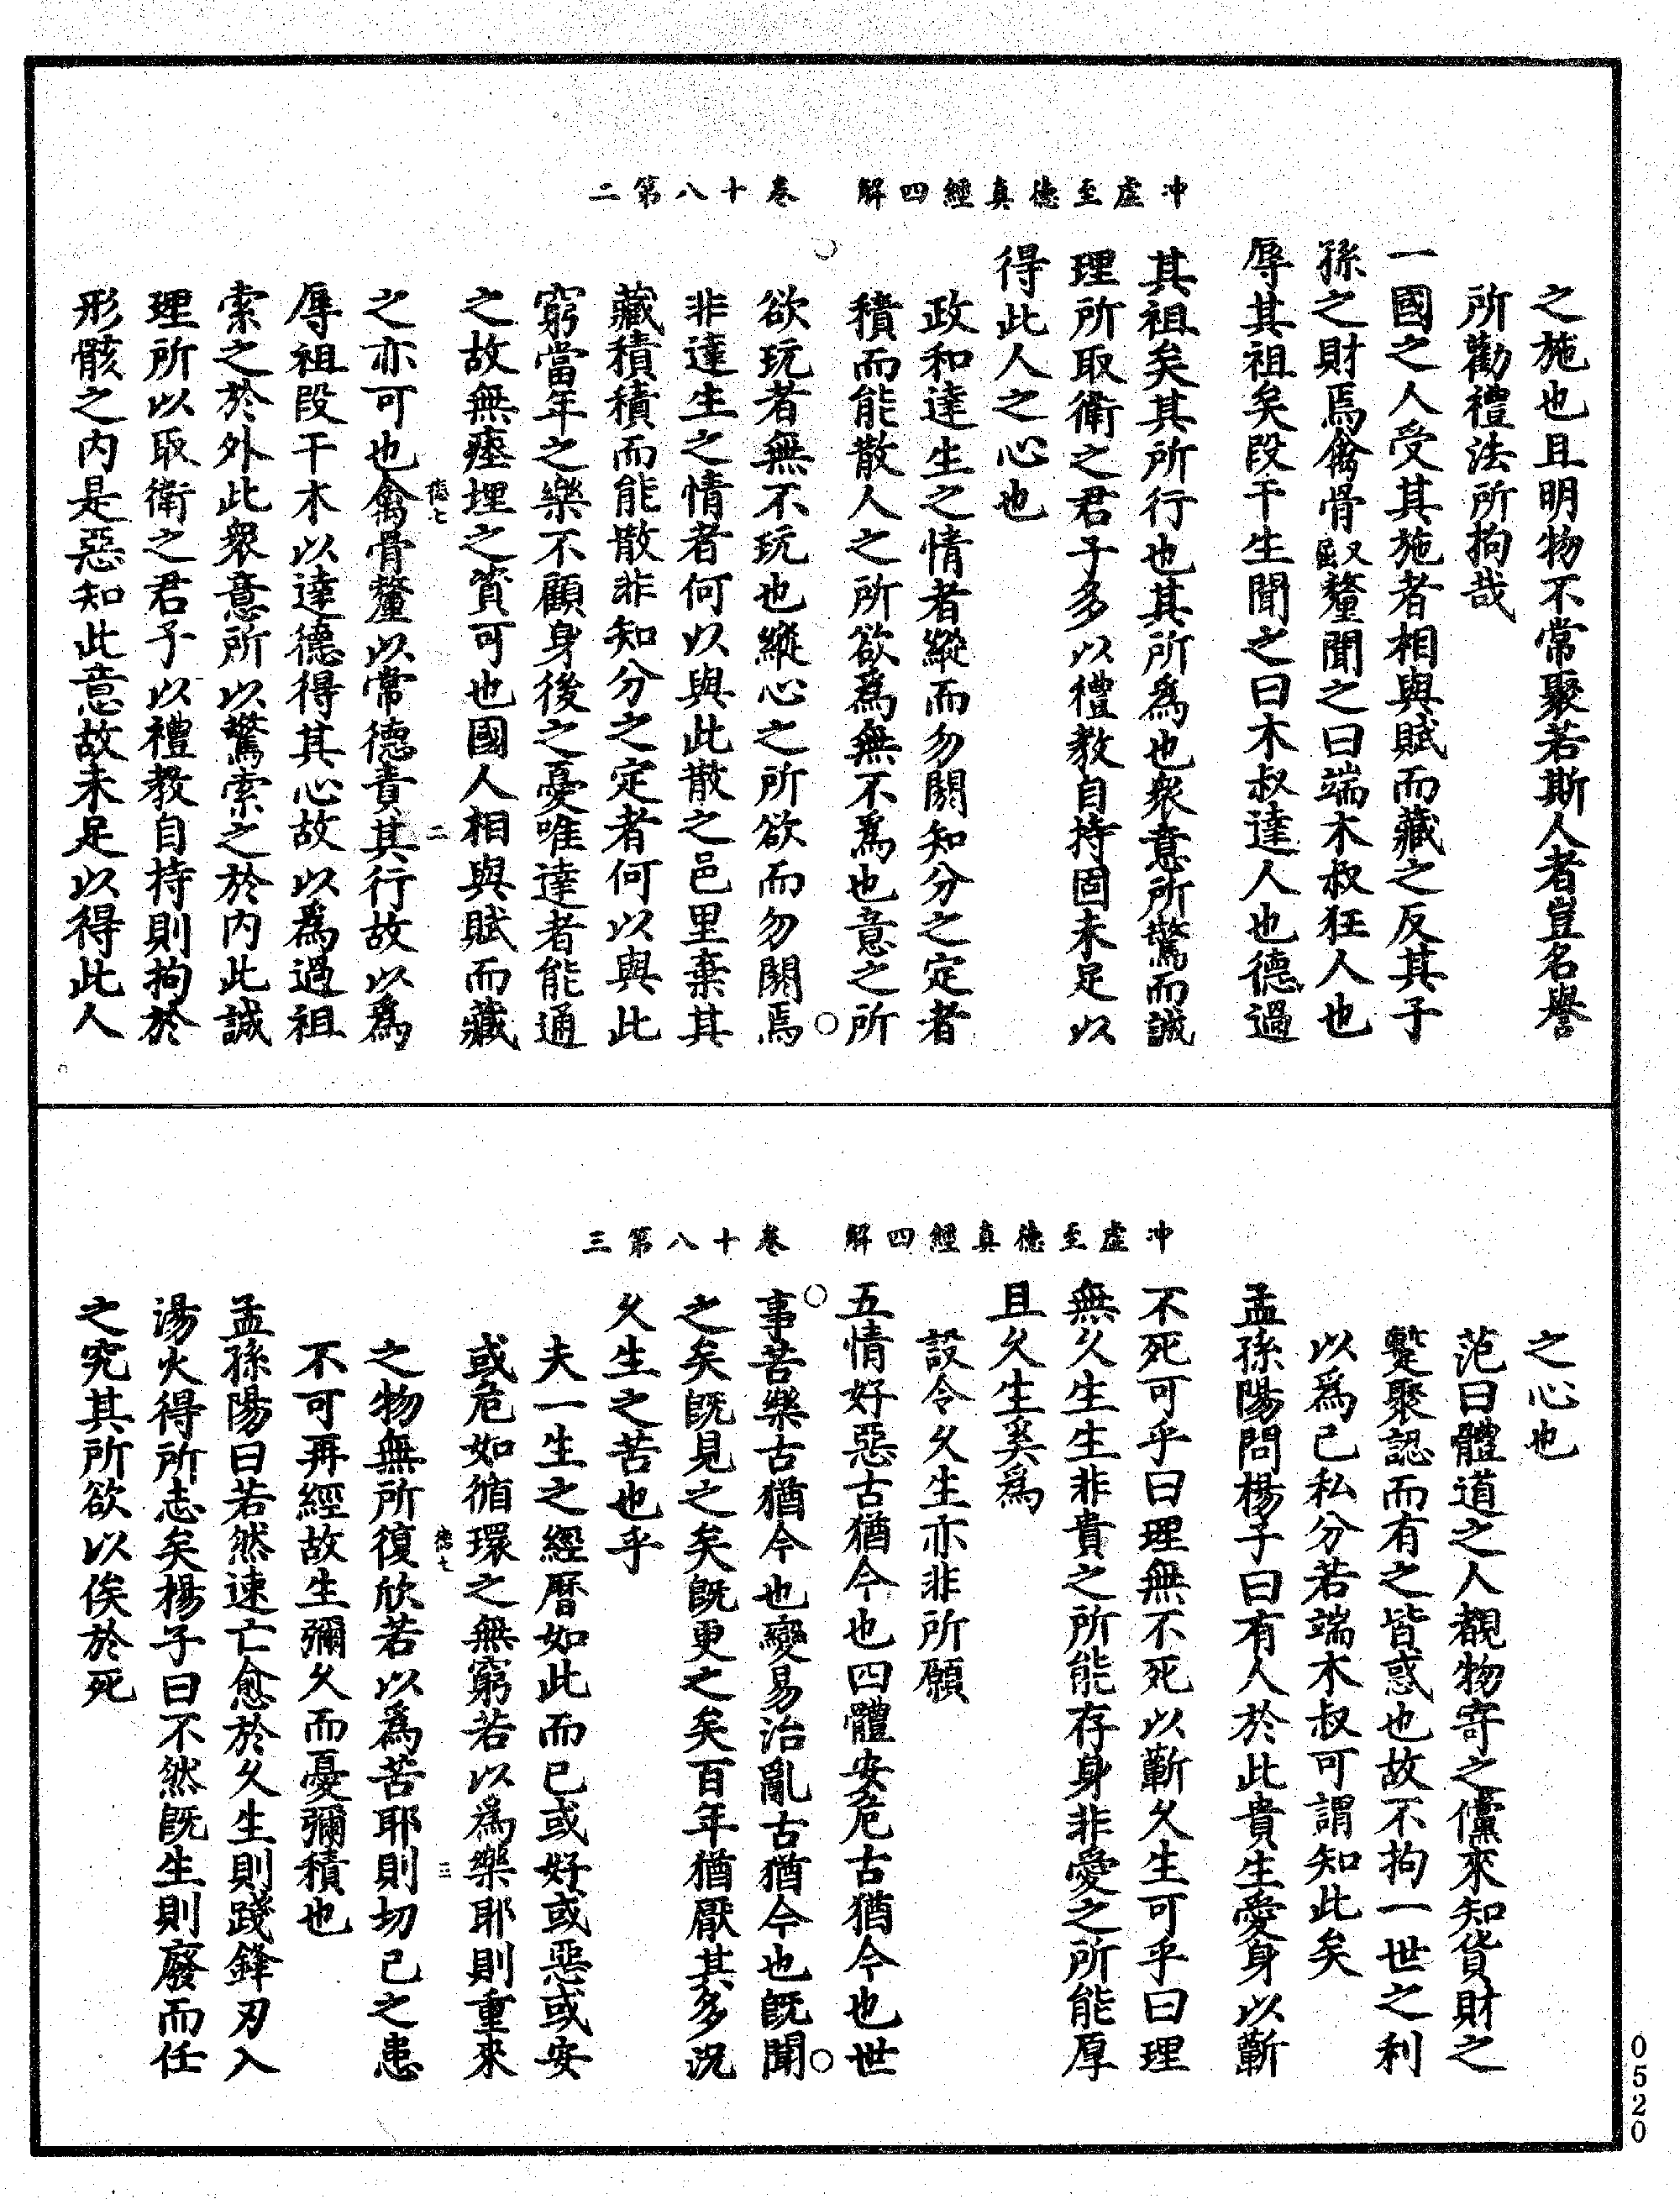 冲虛至德真經四解　卷十八第二
之施也且明物不常聚若斯人者豈名譽
所勸禮法所拘哉
一國之人受其施者相與賦而藏之反其子
孫之財焉禽骨釐聞之曰端木叔狂人也
辱其祖矣段干生聞之曰木叔達人也德過
其祖矣其所行也其所為也衆意所驚而誠
理所取衛之君子多以禮教自持固未足以
得此人之心也
政和達生之情者縱而勿閼知分之定者
積而能散人之所欲爲無不爲也意之所
欲玩者無不玩也縱心之所欲而勿閼焉
非達生之情者何以與此散之邑里棄其
藏積積而能散非知分之定者何以與此
窮當年之樂不顧身後之憂唯達者能通
之故無瘞埋之資可也國人相與賦而藏
德七　二
之亦可也禽骨釐以常德責其行故以爲
辱祖段干木以達德得其心故以爲過祖
索之於外此衆意所以驚索之於内此誠
理所以取衛之君子以禮教自持則拘於
形骸之内是惡知此意故未足以得此人
冲虛至德真經四解　卷十八第三
之心也
范曰體道之人覩物寄之儻來知貨財之
蹔聚認而有之皆惑也故不拘一世之利
以爲己私分若端木叔可謂知此矣
孟孫陽問楊子曰有人於此貴生愛身以蘄
不死可乎曰理無不死以蘄久生可乎曰理
無久生生非貴之所能存身非愛之所能厚
且久生奚爲
設令久生亦非所願
五情好惡古猶今也四體安危古猶今也世
事苦樂古猶今也變易治亂古猶今也既聞
之矣既見之矣既更之矣百年猶厭其多況
久生之苦也乎
夫一生之經曆如此而已或好或惡或安
或危如循環之無窮若以爲樂耶則重來
德七　三
之物無所復欣若以爲苦耶則切己之患
不可再經故生彌久而憂彌積也
孟孫陽曰若然速亡愈於久生則踐鋒刃入
湯火得所志矣楊子曰不然既生則廢而任
之究其所欲以俟於死
0520